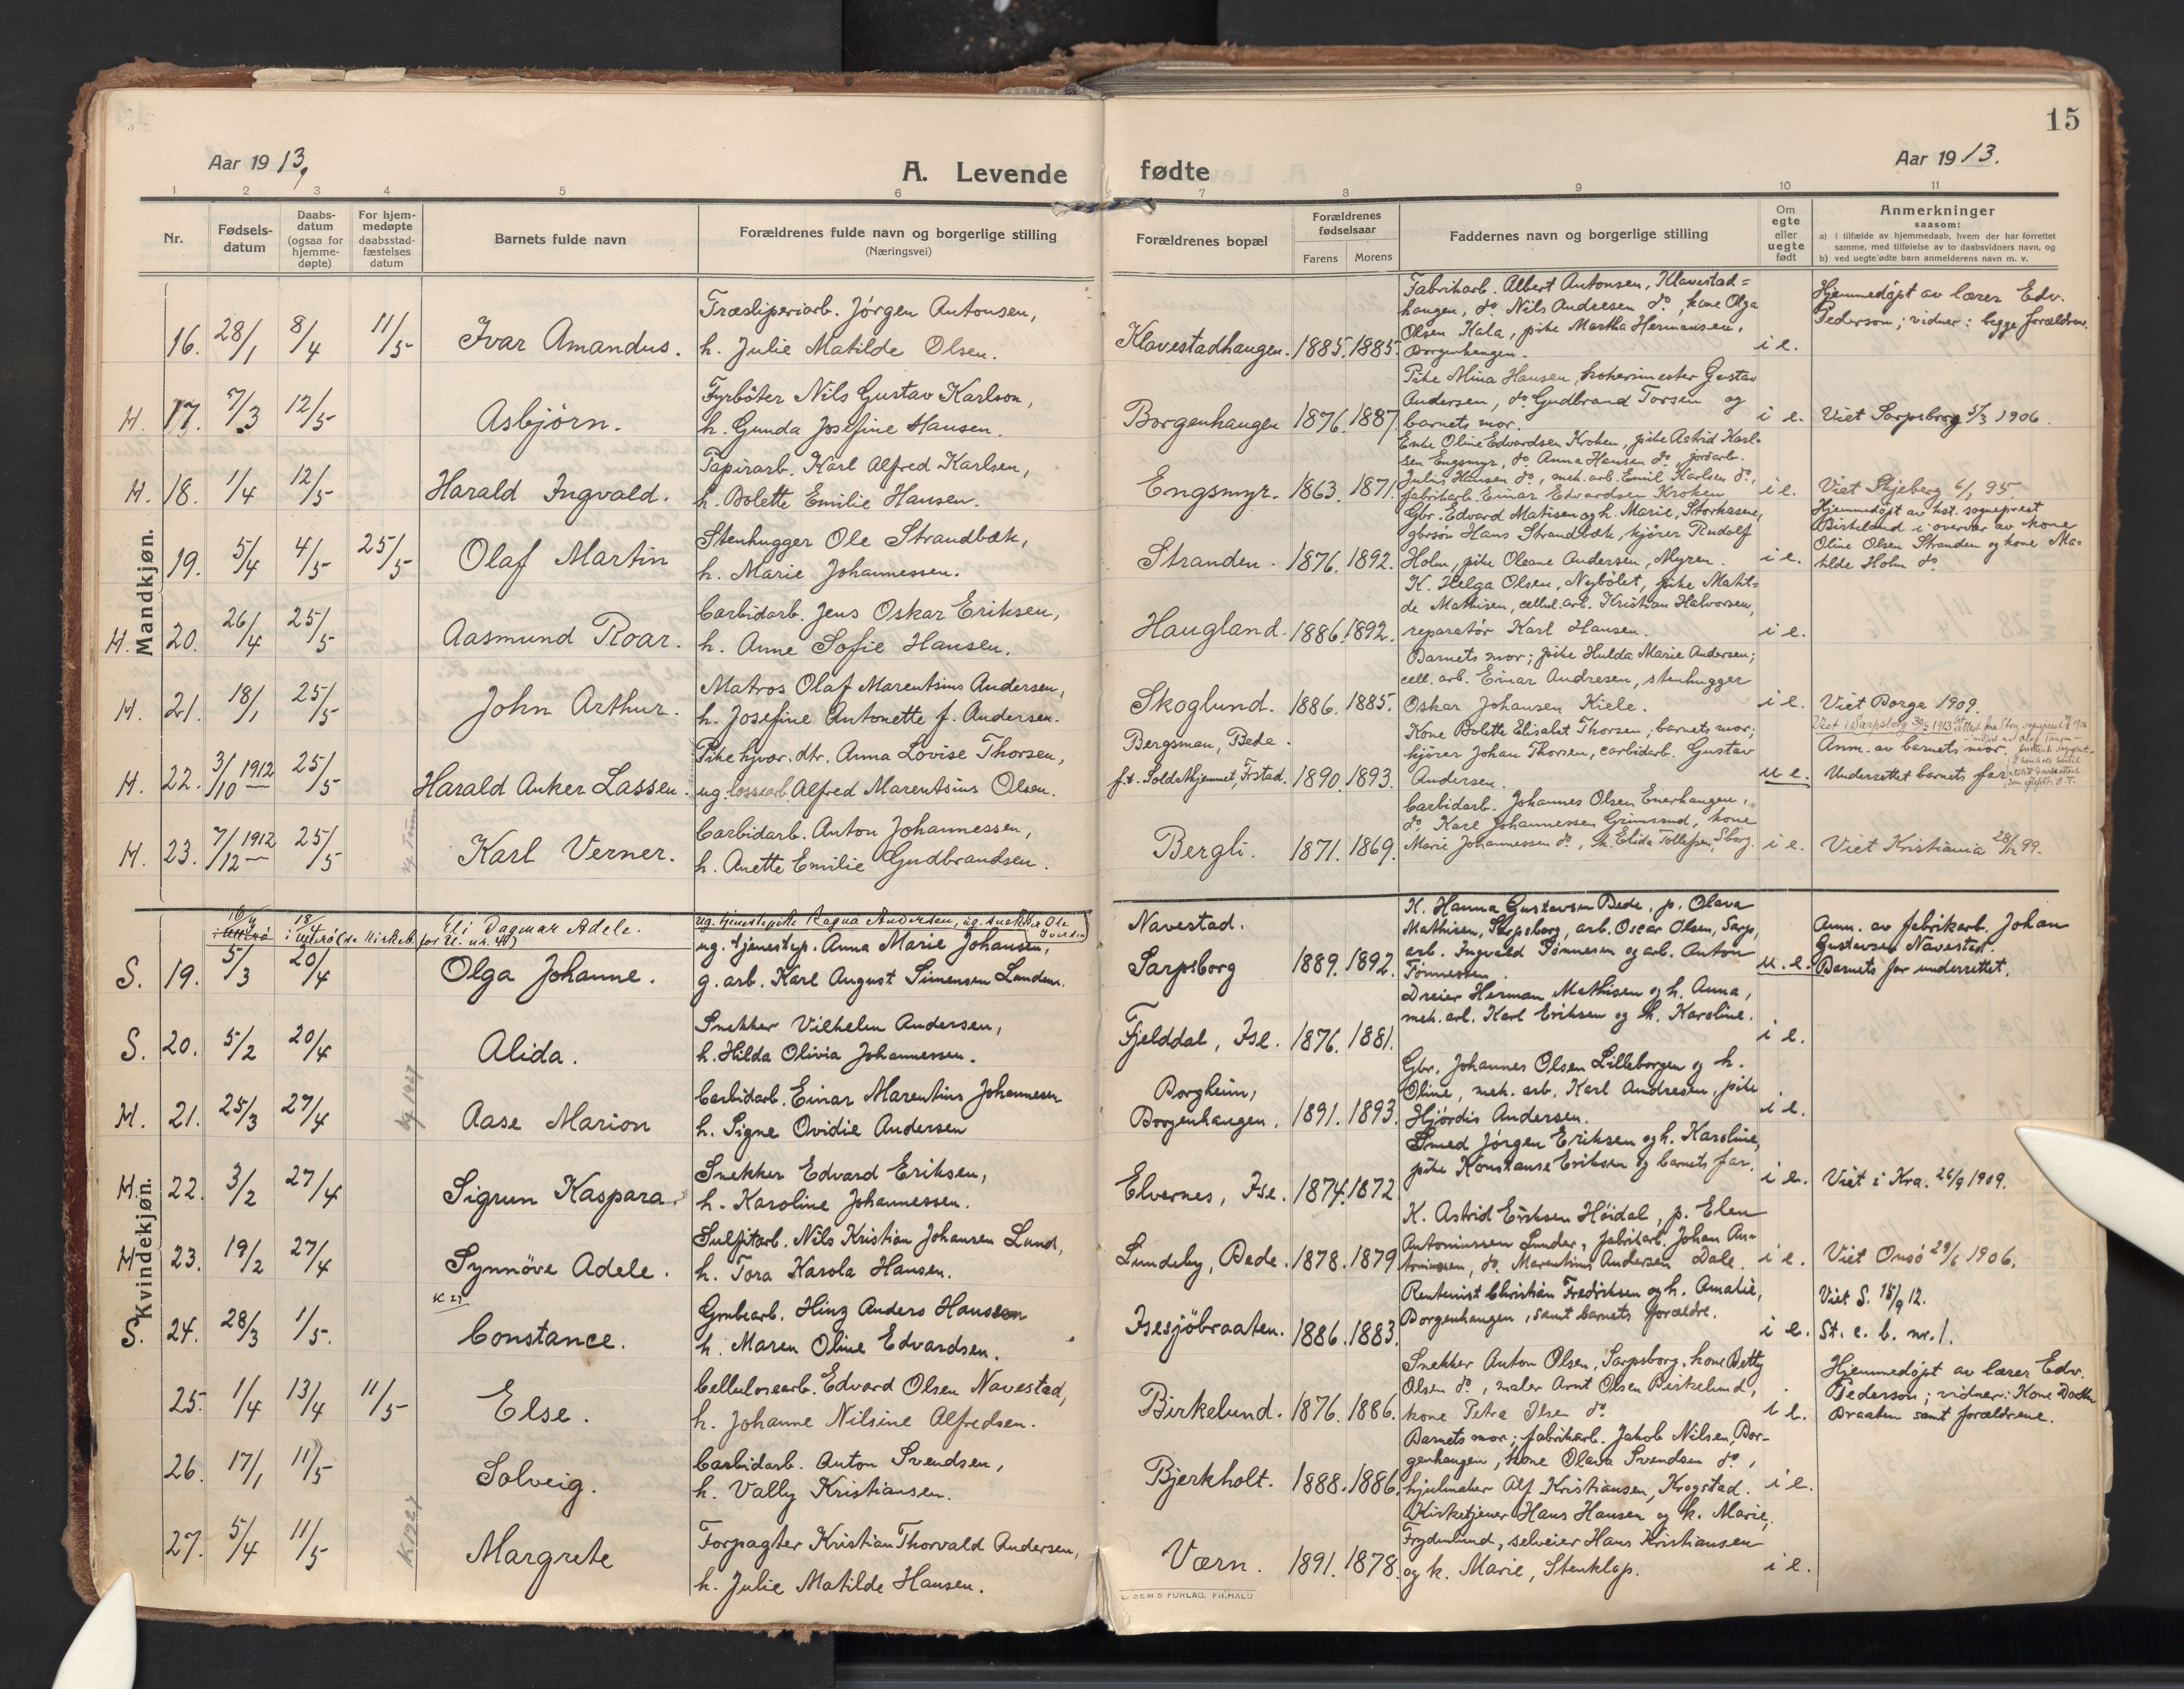 15
Aar 1913.
A. Levende fødte
Aar 1913.
1 2 3 4 5 6 7 8 9 10 11
Nr.
Fødsels-
datum
Daabs-
datum
(ogsaa for
hjemme-
døpte)
For hjem-
medøpte
daabsstad-
fæstelses
datum
Barnets fulde navn
Forældrenes fulde navn og borgerlige stilling
(Næringsvei)
Forældrenes bopæl
Forældrenes
fødselsaar
Farens Morens
Faddernes navn og borgerlige stilling
Om
egte
eller
uegte
født
Anmerkninger
saasom:
a) i tilfælde av hjemmedaab, hvem der har forrettet
samme, med tilføielse av to daabsvidners navn, og
b) ved uegte fødte barn anmelderens navn m. v.
Mandkjøn.
16. 28/1 8/4 11/5 Ivar Amandus.
Træsliperiarb. Jörgen Antonsen,
h. Julie Matilde Olsen.
Klavestadhaugen. 1885. 1885.
Fabrikarb. Albert Antonsen, Klavestad=
haugen, do Nils Andresen do, kone Olga
Olsen Kala, pike Martha Hermansen,
Borgenhaugen.
i e.
Hjemmedøpt av lærer Edv.
Pederson; vidner: begge forældrene.
H. 17. 7/3 12/5 Asbjörn.
Fyrböter Nils Gustav Karlson,
h. Gunda Josefine Hansen.
Borgenhaugen 1876. 1887.
Pike Mina Hansen, kokerimester Gustav
Andersen, do Gudbrand Torsen og
barnets mor.
i e.
Viet Sarpsborg 5/3 1906.
H. 18. 1/4 12/5 Harald Ingvald.
Papirarb. Karl Alfred Karlsen,
h. Bolette Emilie Hansen.
Engsmyr. 1863. 1871.
Enke Oline Edvardsen Kroken, pike Astrid Karl-
sen Engsmyr, do Anna Hansen do, jordarb.
Julius Hansen do, mek. arb. Emil Karlsen do,
fabrikarb. Einar Edvardsen Kroken
i e.
Viet Skjeberg 6/1 95.
19. 5/4 4/5 25/5 Olaf Martin
Stenhugger Ole Strandbæk,
h. Marie Johannessen.
Stranden. 1876. 1892.
Gbr. Edvard Matisen og h. Marie, Storhasene,
gbrsön Hans Strandbæk, kjörer Rudolf
Holm, pike Oleane Andersen, Myren.
i e.
Hjemmedöpt av kst. sogneprest
Birkeland i overvær av kone
Oline Olsen Stranden og kone Ma-
tilde Holm do
H. 20. 26/4 25/5 Aasmund Roar.
Carbidarb. Jens Oskar Eriksen,
h. Anne Sofie Hansen.
Haugland. 1886. 1892.
K. Helga Olsen, Nybölet, pike Matil-
de Mathisen, cellul. arb. Kristian Halvorsen,
reparatör Karl Hansen.
i e.
H. 21. 18/1 25/5 John Arthur.
Matros Olaf Marentsius Andersen,
h. Josefine Antonette f. Andersen.
Skoglund. 1886. 1885.
Barnets mor; pike Hulda Marie Andersen;
cell. arb. Einar Andresen, stenhugger
Oskar Johansen Kiele.
i e.
Viet Borge 1909.
H. 22. 3/10 1912 25/5 Harald Anker Lassen.
Pike hjvær. dtr. Anna Lovise Thorsen,
ug. lossearb. Alfred Marentsius Olsen.
Bergsman, Bede.
f.t. Soldathjemmet, Frstad. 1890. 1893.
Kone Bolette Elisabet Thorsen; barnets mor;
kjörer Johan Thorsen, carbidarb. Gustav
Andersen.
u e.
Viet i Sarpsborg 30/5 1913
Anm. av barnets mor.
Underrettet barnets far
H. 23. 7/12 1912 25/5 Karl Verner.
Carbidarb. Anton Johannessen,
h. Anette Emilie Gudbrandsen.
Bergli. 1871. 1869.
Carbidarb. Johannes Olsen Enerhaugen,
do. Karl Johannessen Grimsrud, kone
Marie Johannessen do, k. Elida Tollefsen, Sborg.
i e.
Viet Kristiania 28/12 99.
Kvindekjøn.
16/4 18/4 Eli Dagmar Adele.
ug. tjenestepike Ragna Andersen, ug. snekker Ole Iversen
Navestad.
S. 19. 5/3 20/4 Olga Johanne.
ug. tjenestep. Anna Marie Johansen,
g. arb. Karl August Simensen Lunden.
Sarpsborg 1889. 1892.
K. Hanna Gustavsen Bede, p. Olava
Mathisen, Sarpsborg, arb. Oscar Olsen, Sarp,
arb. Ingvald Tönnesen og arb. Anton
Tönnessen.
u. e.
Anm. av fabrikarb. Johan
Gustavsen Navestad.
Barnets far underrettet.
S. 20. 5/2 20/4 Alida.
Snekker Vilhelm Andersen,
h. Hilda Olivia Johannessen.
Fjelddal, Ise. 1876. 1881.
Dreier Herman Mathisen og h. Anna,
mek. arb. Karl Eriksen og h. Karoline.
i e.
M. 21. 25/3 27/4 Aase Marion
Carbidarb. Einar Marentius Johannesen
h. Signe Ovidie Andersen
Borgheim,
Borgenhaugen. 1891. 1893.
Gbr. Johannes Olsen Lilleborgen og h.
Oline, mek. arb. Karl Andresen, pike
Hjördis Andersen.
i e.
H. 22. 3/2 27/4 Sigrun Kaspara.
Snekker Edvard Eriksen,
h. Karoline Johannessen.
Elvernes, Ise. 1874. 1872
Smed Jörgen Eriksen og h. Karoline,
pike Konstanse Eriksen og barnets far.
i e.
Viet i Kra. 26/9 1909.
H 23. 19/2 27/4 Synnöve Adele.
Sulfitarb. Nils Kristian Johansen Lund,
h. Tora Karola Hansen.
Lundeby, Bede. 1878. 1879
K. Astrid Eriksen Höidal, p. Elen
Antoniussen Lunder, fabrikarb. Johan An-
toniussen, do. Marentius Andersen Dale.
i e.
Viet Onsö 29/6 1906.
S. 24. 28/3 1/5. Constance.
Grubearb. Hinz Anders Hansson
h. Maren Oline Edvardsen.
Isesjöbraaten. 1886. 1883.
Rentenist Christian Fredriksen og h. Amalie,
Borgenhaugen, samt barnets forældre.
i e.
Viet S. 15/9 12.
St. e. b. nr. 1.
25. 1/4 13/4 11/5 Else.
Cellulosearb. Edvard Olsen Navestad,
h. Johanne Nilsine Alfredsen.
Birkelund. 1876. 1886.
Snekker Anton Olsen, Sarpsborg, kone Betty
Olsen do, maler Arnt Olsen Birkelund,
kone Petra Olsen do.
i e.
Hjemmedøpt av lærer Edv.
Pederson; vidner: Kone
Braaten samt forældrene.
26. 17/1 11/5 Solveig.
Carbidarb. Anton Svendsen,
h. Vally Kristiansen.
Bjerkholt. 1888. 1886.
Barnets mor; fabrikarb. Jakob Nilsen, Bor-
genhaugen, kone Olava Svendsen do,
hjulmaker Alf Kristiansen, Krogstad.
i e.
27. 5/4 11/5 K1927 Margrete
Forpagter Kristian Thorvald Andersen,
h. Julie Matilde Hansen.
Værn. 1891. 1878.
Kirketjener Hans Hansen og k. Marie,
Frydenlund, selveier Hans Kristiansen
og k. Marie, Stenklop.
i e.
E. SEM'S FORLAG. FR.HALD